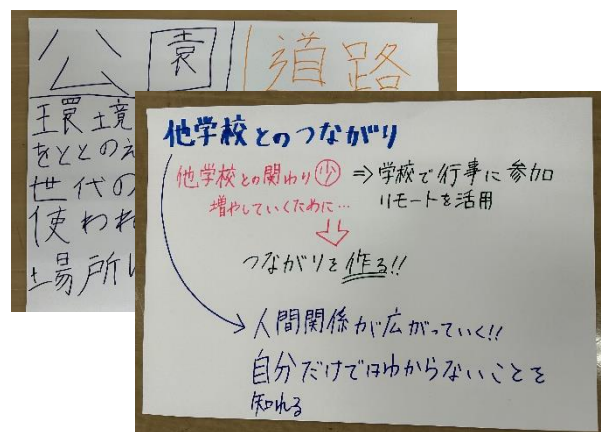 公園 道路
環境
をととのえ
世代の
使われ
場所
他学校とのつながり
他学校との関わり少 ⇒学校で行事に参加
増やしていくために… リモートを活用
つながりを作る!!
人間関係が広がっていく!!
自分だけではわからないことを
知れる